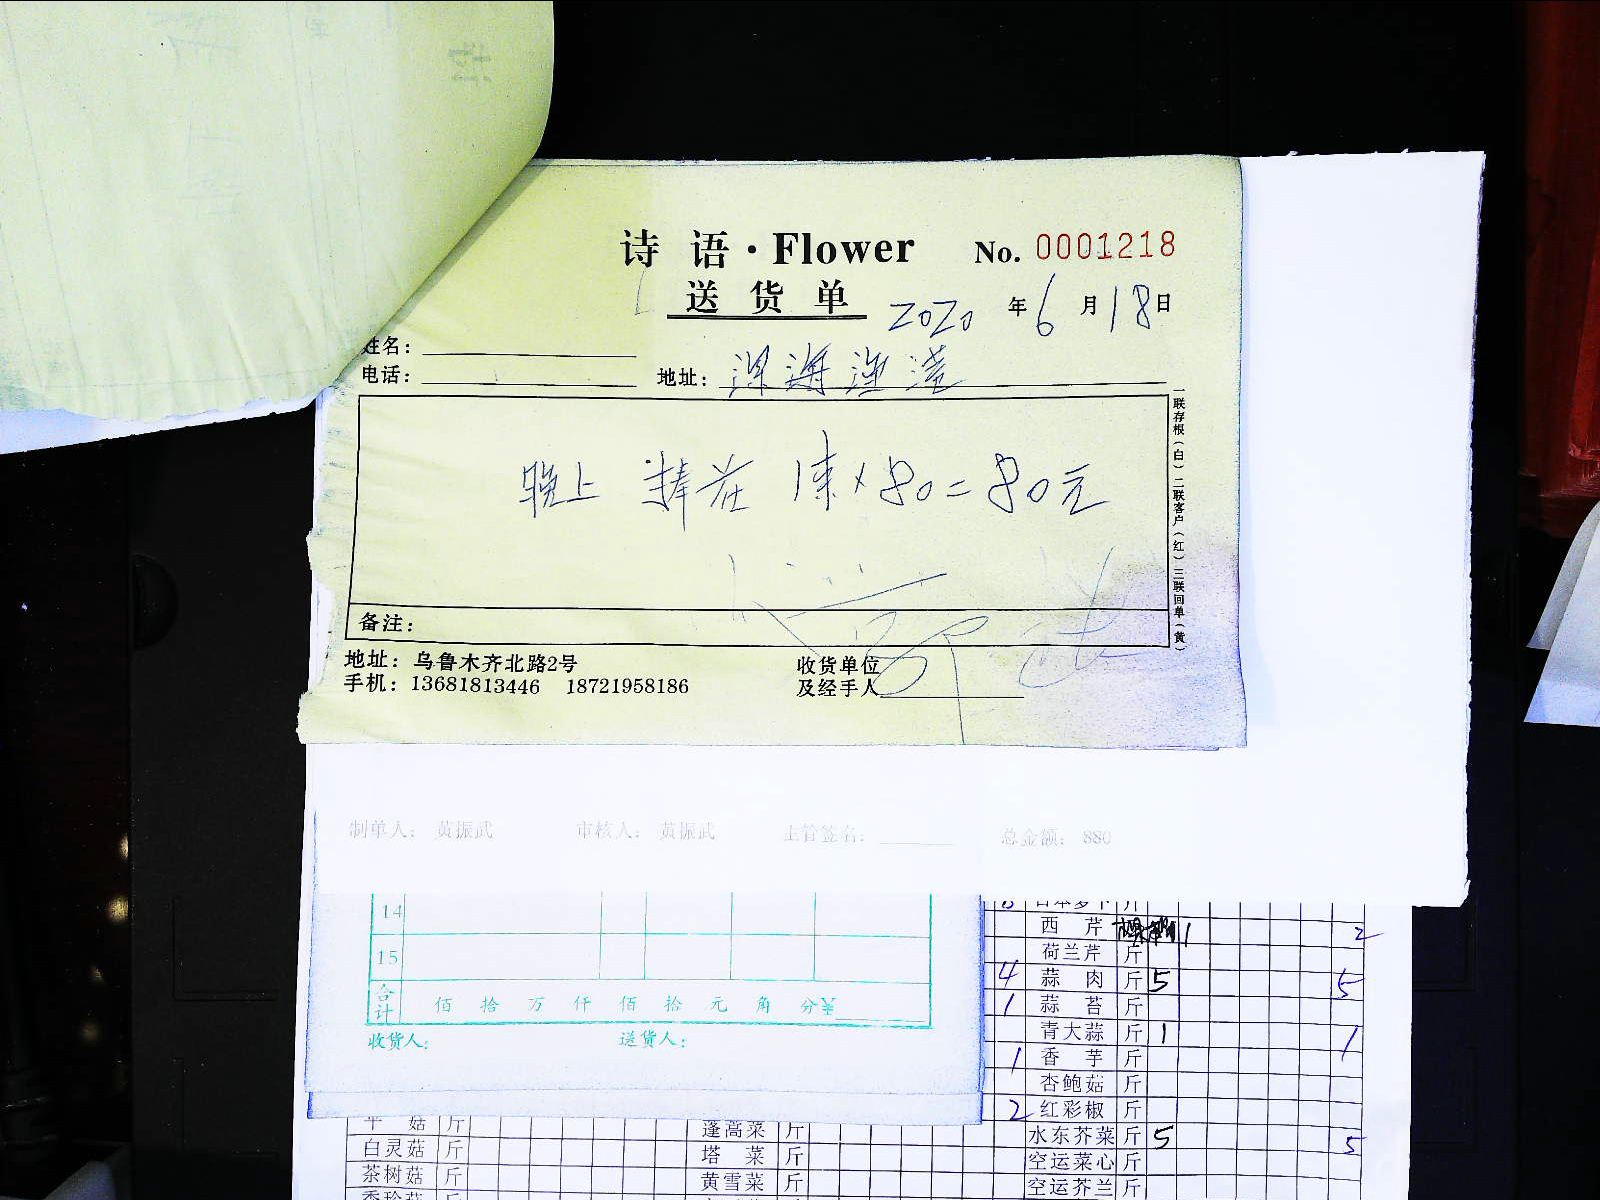 诗语·Flower No. 0001218
送货单 2020年6月18日
姓名：
电话： 地址：深海渔港
一联存根（白）二联客户（红）三联回单（黄）
晚上 捧花 1束×80=80元
备注：
地址：乌鲁木齐北路2号 收货单位
手机：13681813446 18721958186 及经手人
制单人： 黄振武 审核人： 黄振武 主管签名： 总金额： 880
14
15
合计 佰 拾 万 仟 佰 拾 元 角 分¥
收货人： 送货人：
日本萝卜 斤
西芹 1 2
荷兰芹 斤
4 蒜肉 斤 5 5
1 蒜苔 斤
青大蒜 斤 1 1
1 香芋 斤
杏鲍菇 斤
2 红彩椒 斤
平菇 斤 蓬蒿菜 斤 水东芥菜 斤 5 5
白灵菇 斤 塔菜 斤 空运菜心 斤
茶树菇 斤 黄雪菜 斤 空运芥兰 斤